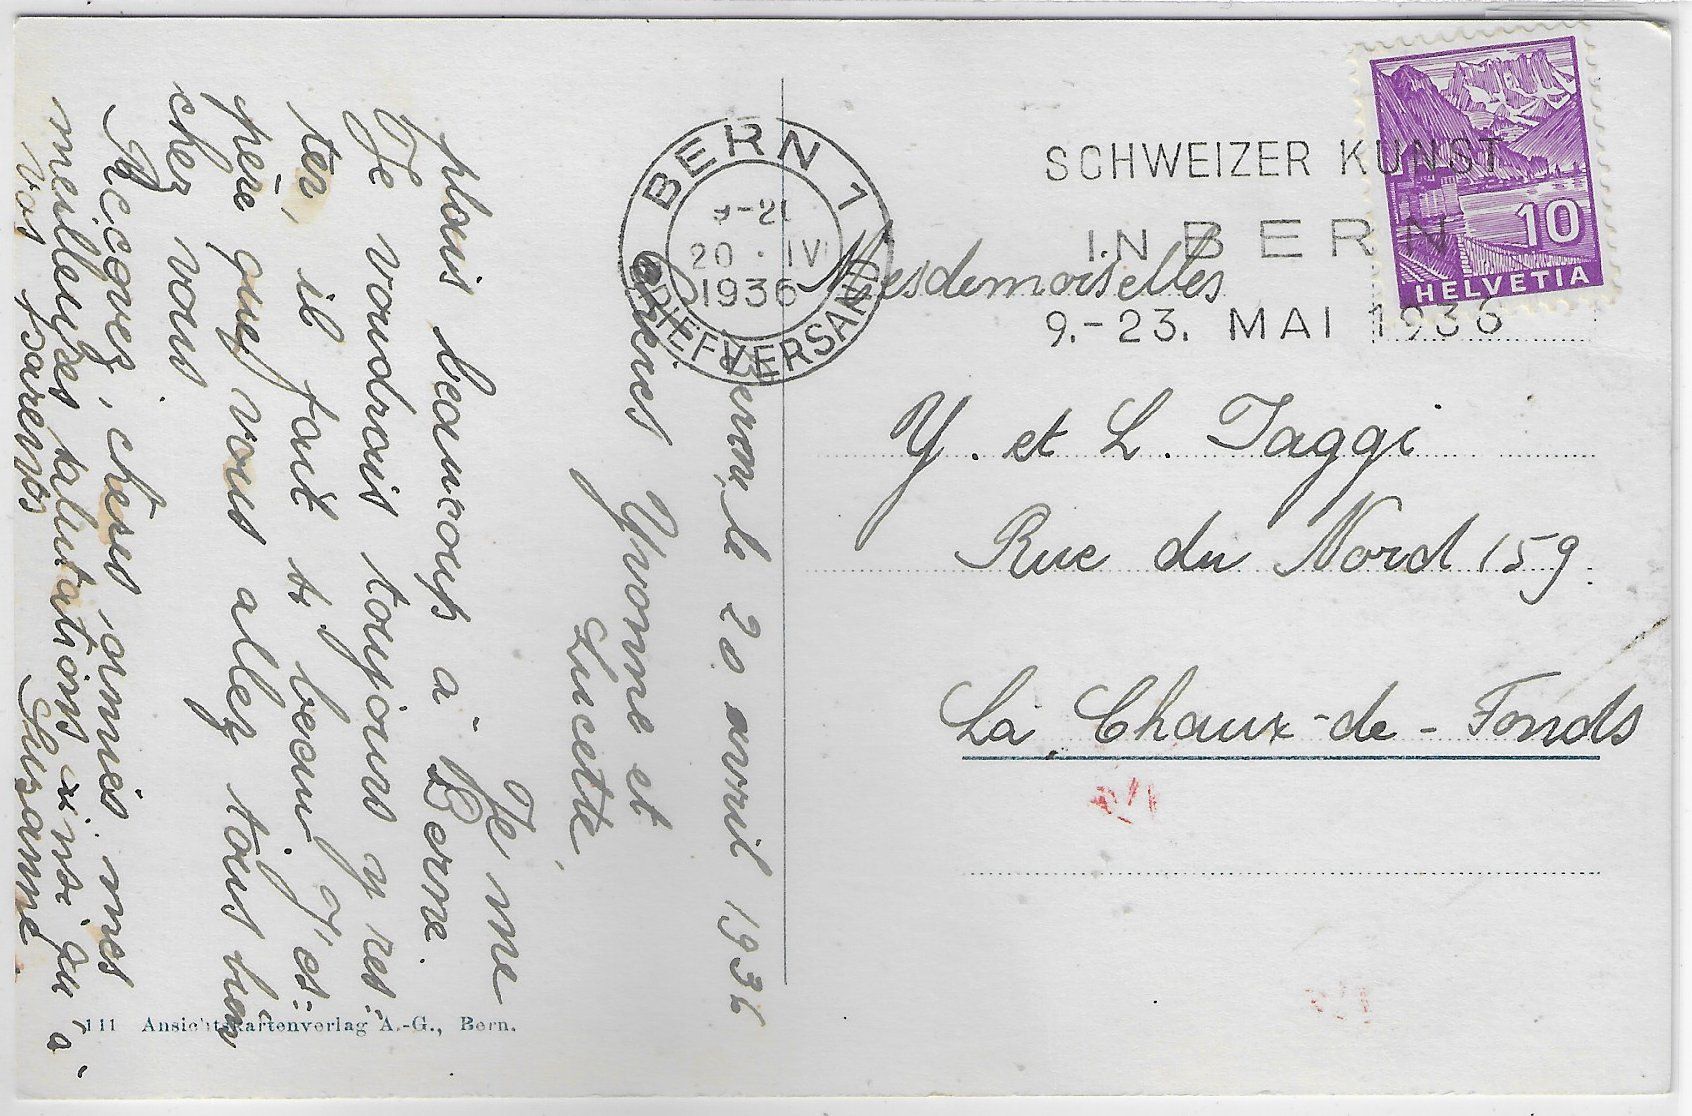 Berne, le 20 avril 1936
Chères Yvonne et
Lucette,
Je me
plais beaucoup à Berne.
Je voudrais toujours y res-
ter, il fait si beau. J'es-
père que vous allez tous bien
chez vous
Recevez, chères amies, mes
meilleures salutations ainsi qu'à
vos parents
Suzanne.
111 Ansichtskartenverlag A.-G., Bern.
BERN 1
20.IV
1936
BRIEFVERSAND
SCHWEIZER KUNST
IN BERN
9.-23. MAI 1936
10
HELVETIA
Mesdemoiselles
Y. et L. Jaggi
Rue du Nord 159.
La Chaux-de-Fonds